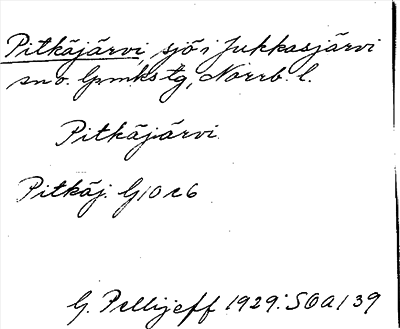 Pitkäjärvi, sjö i Jukkasjärvi
sn o. lpmks tg, Norrb. l.
Pitkäjärvi.
Pitkäj. G10 c6
G. Pellijeff 1929: SOA 139